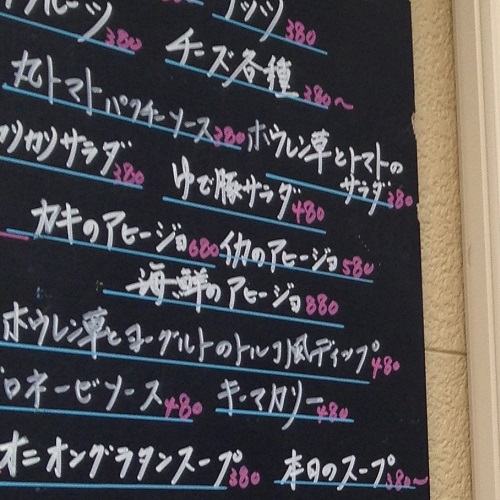 フルーツ 380
ナッツ 380
チーズ各種 380〜
丸トマトパクチーソース 380
カリカリサラダ 380
ホウレン草とトマトの
サラダ 380
ゆで豚サラダ 480
カキのアヒージョ 680
イカのアヒージョ 580
海鮮のアヒージョ 880
ホウレン草とヨーグルトのトルコ風ディップ 480
ロネービソース 480
キーマカリー 480
オニオングラタンスープ 380
本日のスープ 380〜